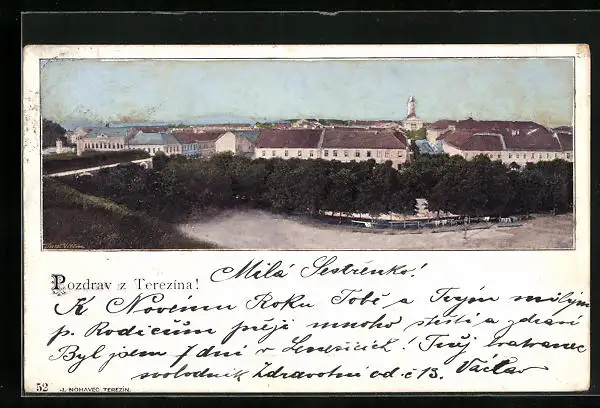 Pozdrav z Terezína! Milá Sestřenko!
K Novému Roku Tobě a Tvým milým
p. Rodičům přeji mnoho štěstí a zdraví
Byl jsem 7 dní v ! Tvůj bratranec
svobodník Zdravotní od. č 13. Václav
52 J. NOHAVEC TEREZÍN.